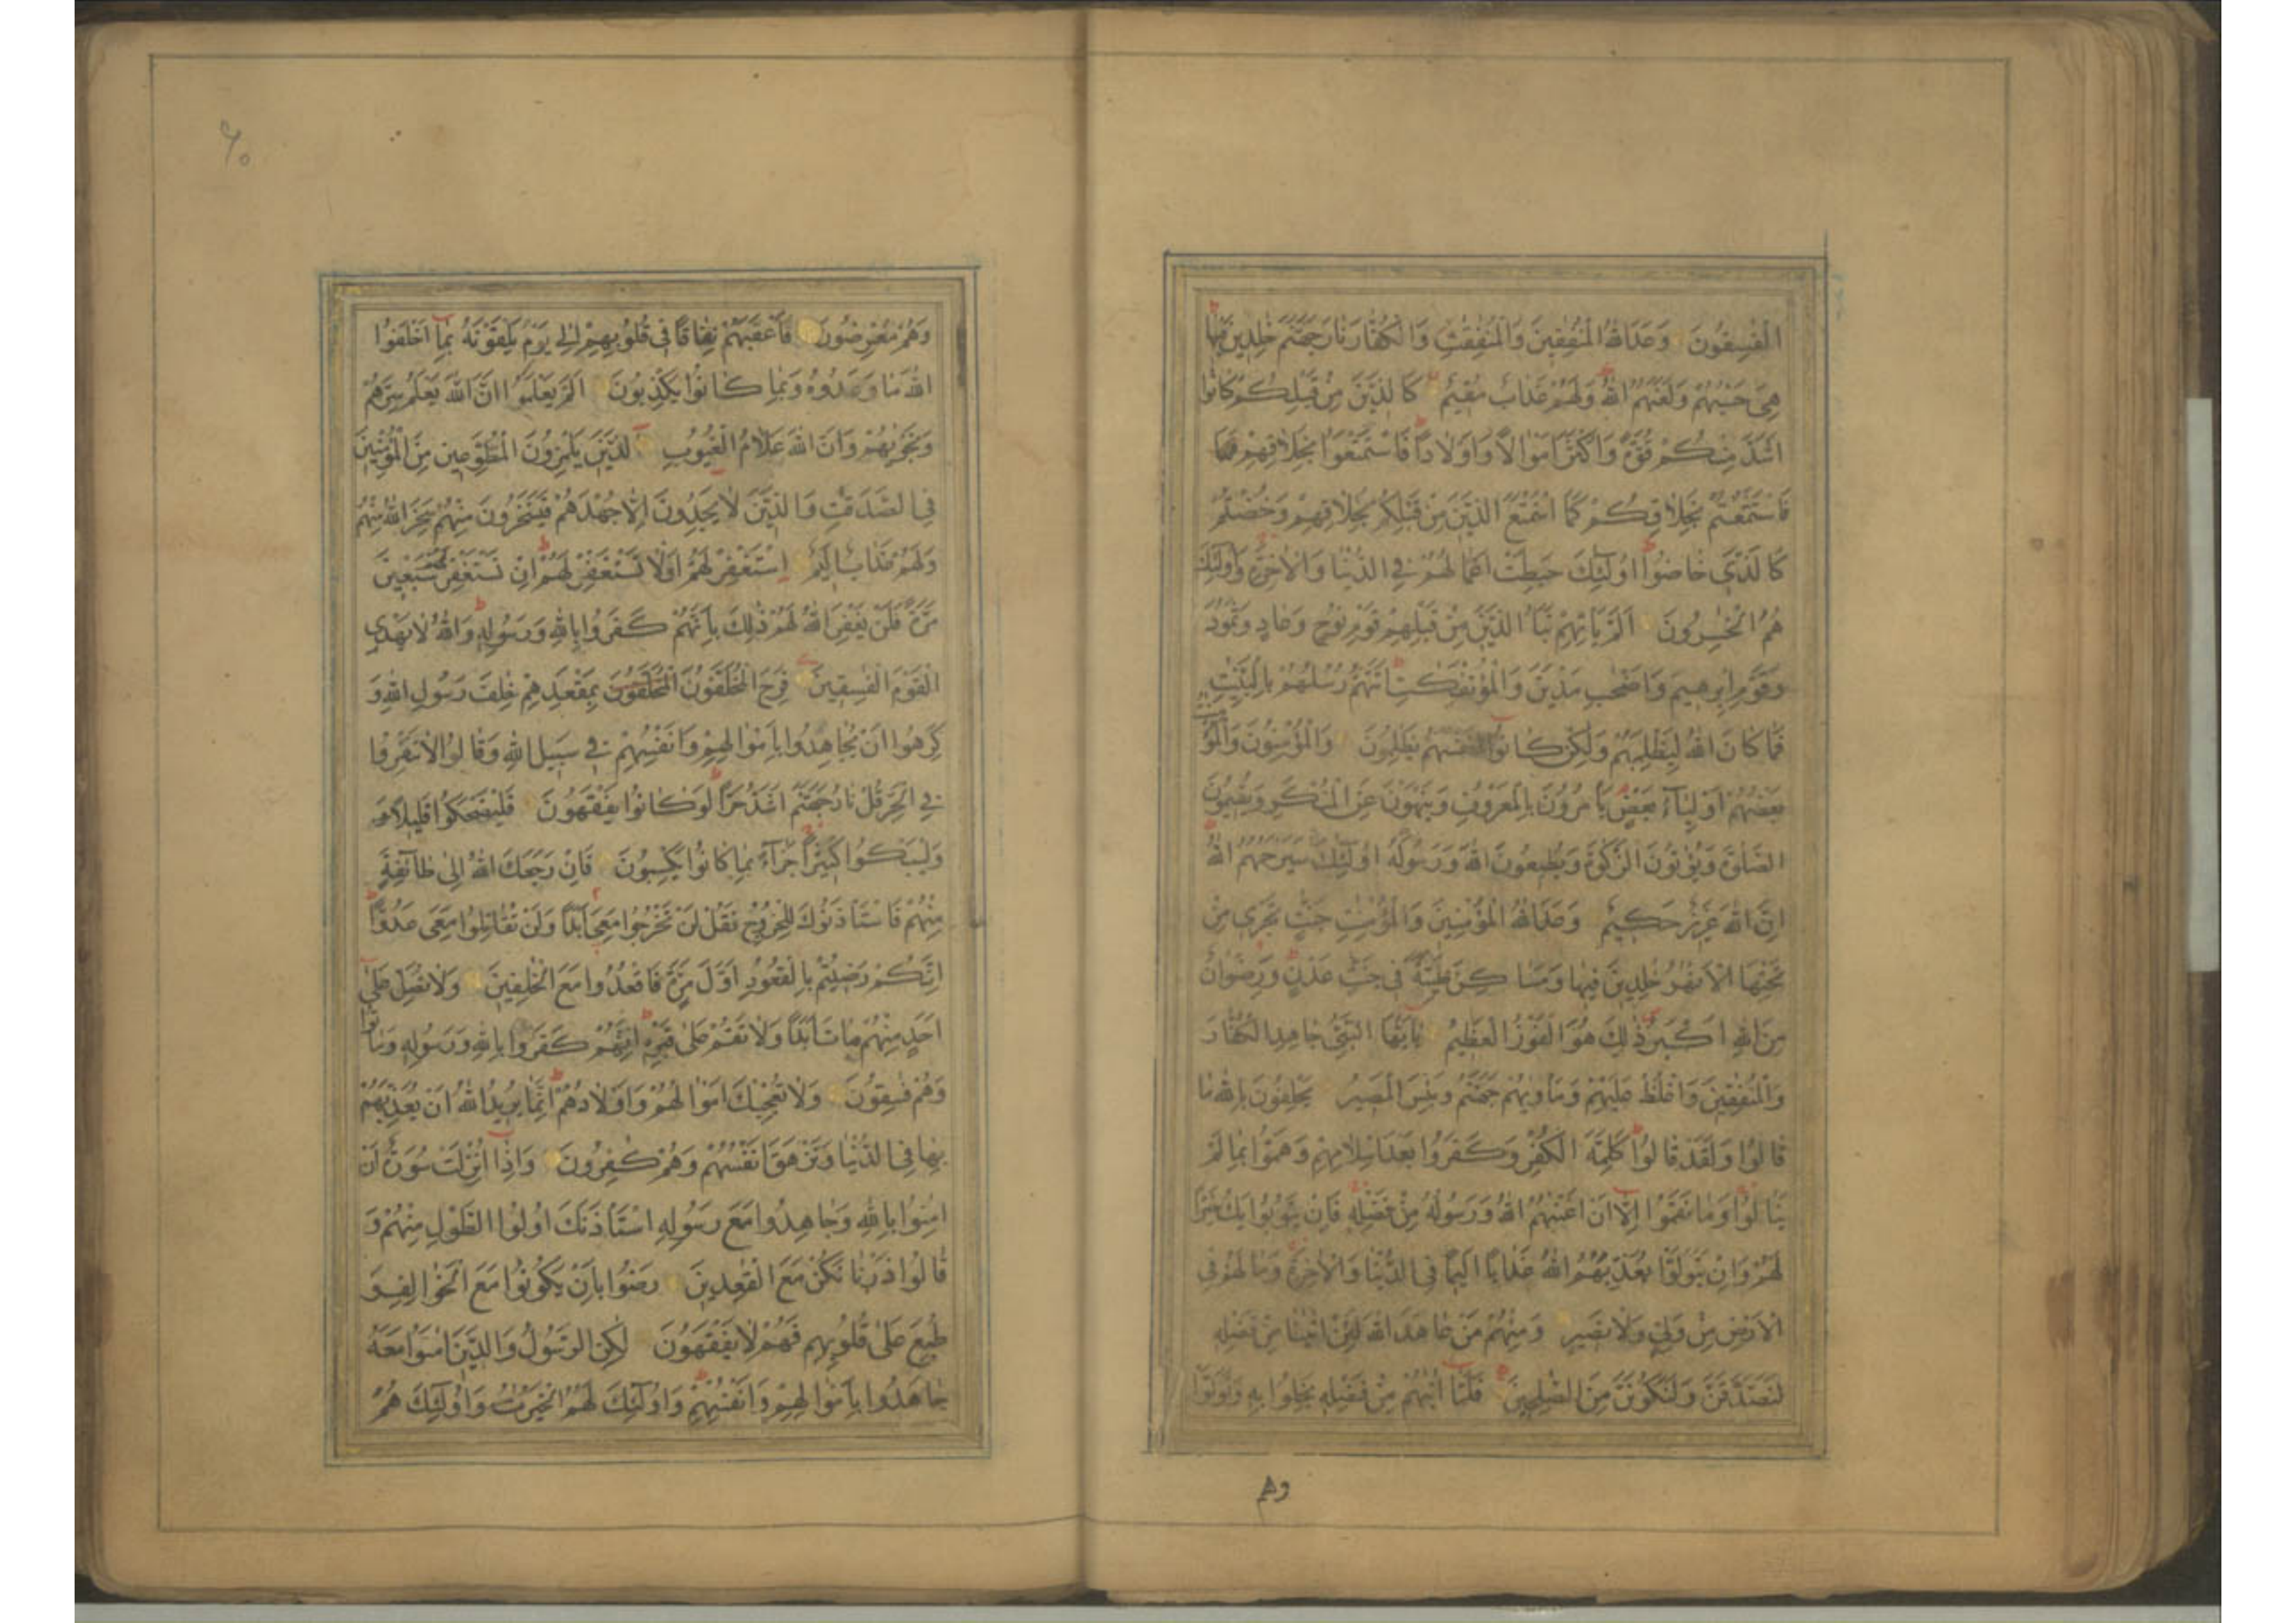 الْفٰسِقُونَ وَعَدَ اللهُ الْمُنٰفِقِينَ وَالْمُنٰفِقٰتِ وَالْكُفَّارَ نَارَ جَهَنَّمَ خٰلِدِينَ فِيهَا
هِيَ حَسْبُهُمْ وَلَعَنَهُمُ اللهُ وَلَهُمْ عَذَابٌ مُقِيمٌ كَالَّذِينَ مِنْ قَبْلِكُمْ كَانُوا
اَشَدَّ مِنْكُمْ قُوَّةً وَاَكْثَرَ اَمْوَالًا وَاَوْلَادًا فَاسْتَمْتَعُوا بِخَلَاقِهِمْ
فَاسْتَمْتَعْتُمْ بِخَلَاقِكُمْ كَمَا اسْتَمْتَعَ الَّذِينَ مِنْ قَبْلِكُمْ بِخَلَاقِهِمْ وَخُضْتُمْ
كَالَّذِي خَاضُوا اُولٰٓئِكَ حَبِطَتْ اَعْمَالُهُمْ فِي الدُّنْيَا وَالْاٰخِرَةِ وَاُولٰٓئِكَ
هُمُ الْخٰسِرُونَ اَلَمْ يَأْتِهِمْ نَبَأُ الَّذِينَ مِنْ قَبْلِهِمْ قَوْمِ نُوحٍ وَعَادٍ وَثَمُودَ
وَقَوْمِ اِبْرٰهِيمَ وَاَصْحٰبِ مَدْيَنَ وَالْمُؤْتَفِكٰتِ اَتَتْهُمْ رُسُلُهُمْ بِالْبَيِّنٰتِ
فَمَا كَانَ اللهُ لِيَظْلِمَهُمْ وَلٰكِنْ كَانُوا اَنْفُسَهُمْ يَظْلِمُونَ وَالْمُؤْمِنُونَ وَالْمُؤْمِنٰتُ
بَعْضُهُمْ اَوْلِيَآءُ بَعْضٍ يَأْمُرُونَ بِالْمَعْرُوفِ وَيَنْهَوْنَ عَنِ الْمُنْكَرِ وَيُقِيمُونَ
الصَّلٰوةَ وَيُؤْتُونَ الزَّكٰوةَ وَيُطِيعُونَ اللهَ وَرَسُولَهُ اُولٰٓئِكَ سَيَرْحَمُهُمُ اللهُ
اِنَّ اللهَ عَزِيزٌ حَكِيمٌ وَعَدَ اللهُ الْمُؤْمِنِينَ وَالْمُؤْمِنٰتِ جَنّٰتٍ تَجْرِي مِنْ
تَحْتِهَا الْاَنْهٰرُ خٰلِدِينَ فِيهَا وَمَسَاكِنَ طَيِّبَةً فِي جَنّٰتِ عَدْنٍ وَرِضْوَانٌ
مِنَ اللهِ اَكْبَرُ ذٰلِكَ هُوَ الْفَوْزُ الْعَظِيمُ يَآ اَيُّهَا النَّبِيُّ جَاهِدِ الْكُفَّارَ
وَالْمُنٰفِقِينَ وَاغْلُظْ عَلَيْهِمْ وَمَأْوٰيهُمْ جَهَنَّمُ وَبِئْسَ الْمَصِيرُ يَحْلِفُونَ بِاللهِ مَا
قَالُوا وَلَقَدْ قَالُوا كَلِمَةَ الْكُفْرِ وَكَفَرُوا بَعْدَ اِسْلَامِهِمْ وَهَمُّوا بِمَا لَمْ
يَنَالُوا وَمَا نَقَمُوا اِلَّا اَنْ اَغْنٰيهُمُ اللهُ وَرَسُولُهُ مِنْ فَضْلِهِ فَاِنْ يَتُوبُوا يَكُ خَيْرًا
لَهُمْ وَاِنْ يَتَوَلَّوْا يُعَذِّبْهُمُ اللهُ عَذَابًا اَلِيمًا فِي الدُّنْيَا وَالْاٰخِرَةِ وَمَا لَهُمْ فِي
الْاَرْضِ مِنْ وَلِيٍّ وَلَا نَصِيرٍ وَمِنْهُمْ مَنْ عَاهَدَ اللهَ لَئِنْ اٰتٰينَا مِنْ فَضْلِهِ
لَنَصَّدَّقَنَّ وَلَنَكُونَنَّ مِنَ الصّٰلِحِينَ فَلَمَّا اٰتٰيهُمْ مِنْ فَضْلِهِ بَخِلُوا بِهِ وَتَوَلَّوْا
وهم
۶۰
وَهُمْ مُعْرِضُونَ فَاَعْقَبَهُمْ نِفَاقًا فِي قُلُوبِهِمْ اِلٰى يَوْمِ يَلْقَوْنَهُ بِمَا اَخْلَفُوا
اللهَ مَا وَعَدُوهُ وَبِمَا كَانُوا يَكْذِبُونَ اَلَمْ يَعْلَمُوا اَنَّ اللهَ يَعْلَمُ سِرَّهُمْ
وَنَجْوٰيهُمْ وَاَنَّ اللهَ عَلَّامُ الْغُيُوبِ الَّذِينَ يَلْمِزُونَ الْمُطَّوِّعِينَ مِنَ الْمُؤْمِنِينَ
فِي الصَّدَقٰتِ وَالَّذِينَ لَا يَجِدُونَ اِلَّا جُهْدَهُمْ فَيَسْخَرُونَ مِنْهُمْ سَخِرَ اللهُ مِنْهُمْ
وَلَهُمْ عَذَابٌ اَلِيمٌ اِسْتَغْفِرْ لَهُمْ اَوْ لَا تَسْتَغْفِرْ لَهُمْ اِنْ تَسْتَغْفِرْ لَهُمْ سَبْعِينَ
مَرَّةً فَلَنْ يَغْفِرَ اللهُ لَهُمْ ذٰلِكَ بِاَنَّهُمْ كَفَرُوا بِاللهِ وَرَسُولِهِ وَاللهُ لَا يَهْدِي
الْقَوْمَ الْفٰسِقِينَ فَرِحَ الْمُخَلَّفُونَ الْمُخَلَّفُونَ بِمَقْعَدِهِمْ خِلٰفَ رَسُولِ اللهِ وَ
كَرِهُوا اَنْ يُجَاهِدُوا بِاَمْوَالِهِمْ وَاَنْفُسِهِمْ فِي سَبِيلِ اللهِ وَقَالُوا لَا تَنْفِرُوا
فِي الْحَرِّ قُلْ نَارُ جَهَنَّمَ اَشَدُّ حَرًّا لَوْ كَانُوا يَفْقَهُونَ فَلْيَضْحَكُوا قَلِيلًا وَ
وَلْيَبْكُوا كَثِيرًا جَزَآءً بِمَا كَانُوا يَكْسِبُونَ فَاِنْ رَجَعَكَ اللهُ اِلٰى طَآئِفَةٍ
مِنْهُمْ فَاسْتَأْذَنُوكَ لِلْخُرُوجِ فَقُلْ لَنْ تَخْرُجُوا مَعِيَ اَبَدًا وَلَنْ تُقَاتِلُوا مَعِيَ عَدُوًّا
اِنَّكُمْ رَضِيتُمْ بِالْقُعُودِ اَوَّلَ مَرَّةٍ فَاقْعُدُوا مَعَ الْخٰلِفِينَ وَلَا تُصَلِّ عَلٰى
اَحَدٍ مِنْهُمْ مَاتَ اَبَدًا وَلَا تَقُمْ عَلٰى قَبْرِهِ اِنَّهُمْ كَفَرُوا بِاللهِ وَرَسُولِهِ وَمَاتُوا
وَهُمْ فٰسِقُونَ وَلَا تُعْجِبْكَ اَمْوَالُهُمْ وَاَوْلَادُهُمْ اِنَّمَا يُرِيدُ اللهُ اَنْ يُعَذِّبَهُمْ
بِهَا فِي الدُّنْيَا وَتَزْهَقَ اَنْفُسُهُمْ وَهُمْ كٰفِرُونَ وَاِذَا اُنْزِلَتْ سُورَةٌ اَنْ
اٰمِنُوا بِاللهِ وَجَاهِدُوا مَعَ رَسُولِهِ اسْتَأْذَنَكَ اُولُوا الطَّوْلِ مِنْهُمْ وَ
قَالُوا ذَرْنَا نَكُنْ مَعَ الْقٰعِدِينَ رَضُوا بِاَنْ يَكُونُوا مَعَ الْخَوَالِفِ وَ
طُبِعَ عَلٰى قُلُوبِهِمْ فَهُمْ لَا يَفْقَهُونَ لٰكِنِ الرَّسُولُ وَالَّذِينَ اٰمَنُوا مَعَهُ
جَاهَدُوا بِاَمْوَالِهِمْ وَاَنْفُسِهِمْ وَاُولٰٓئِكَ لَهُمُ الْخَيْرٰتُ وَاُولٰٓئِكَ هُمُ